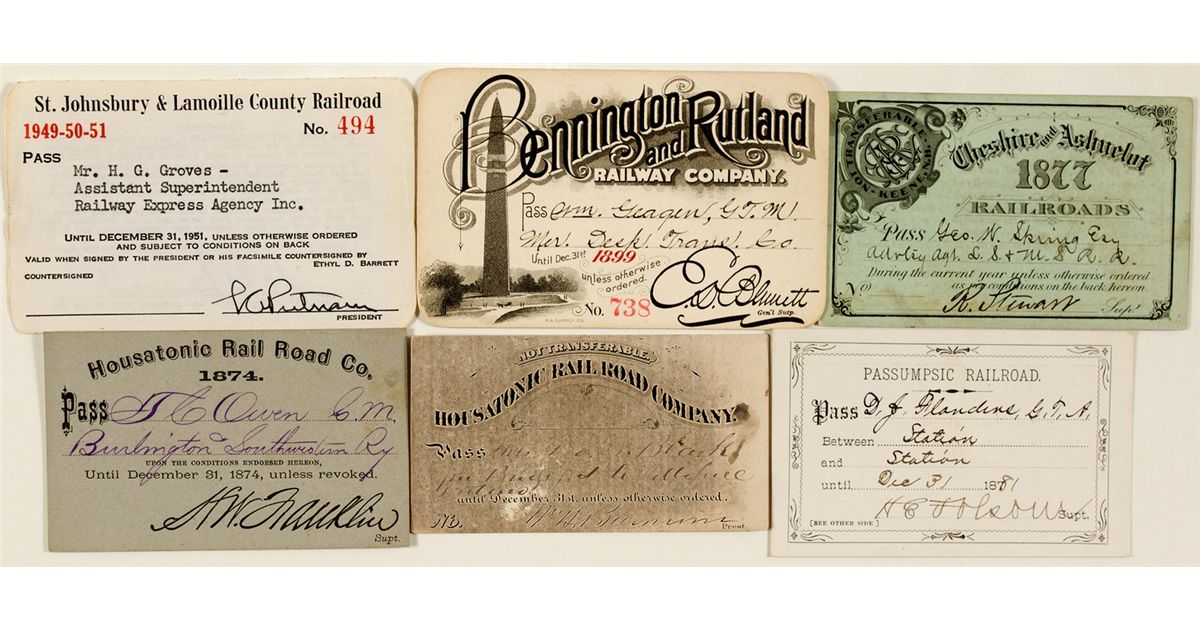 St. Johnsbury & Lamoille County Railroad
1949-50-51 No. 494
PASS
Mr. H. G. Groves -
Assistant Superintendent
Railway Express Agency Inc.
UNTIL DECEMBER 31, 1951, UNLESS OTHERWISE ORDERED
AND SUBJECT TO CONDITIONS ON BACK
VALID WHEN SIGNED BY THE PRESIDENT OR HIS FACSIMILE COUNTERSIGNED BY
ETHYL D. BARRETT
COUNTERSIGNED
PRESIDENT
Bennington
and Rutland
RAILWAY COMPANY.
Pass Wm. Geagen, G.T.M.
Mer. Desp. Trans. Co.
Until Dec. 31st 1899 unless otherwise
ordered.
No. 738
Gen'l Supt.
Cheshire and Ashuelot
1877
RAILROADS
Pass Geo. W. Spring Esq
Adv. Agt. L. S. & M. S. R. R.
During the current year unless otherwise ordered
No as per conditions on the back hereon.
R. Stewart Supt.
Housatonic Rail Road Co.
1874.
Pass T C Owen G. M.
Burlington & Southwestern Ry
UPON THE CONDITIONS ENDORSED HEREON,
Until December 31, 1874, unless revoked.
Franklin
Supt.
NOT TRANSFERABLE.
HOUSATONIC RAIL ROAD COMPANY.
Pass
until December 31st. unless otherwise ordered.
No. Prest.
PASSUMPSIC RAILROAD.
Pass D. J. Flanders, G. T. A.
Between Station
and Station
until Dec 31 1881
[SEE OTHER SIDE] Supt.